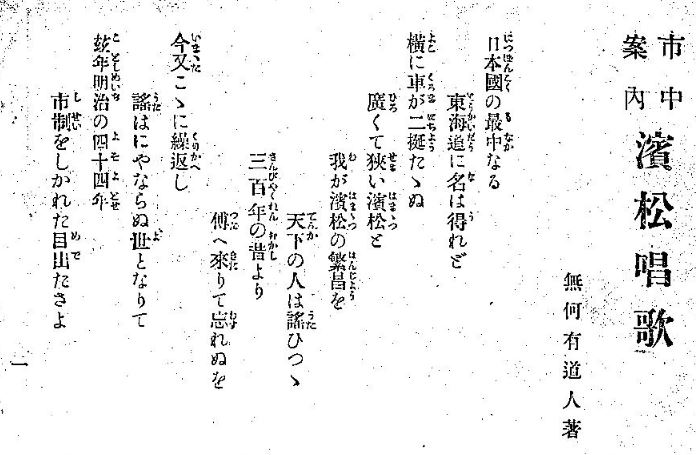 市中案内 濱松唱歌
無何有道人著
日本國の最中なる
東海道に名は得れど
横に車が二挺たゝぬ
廣くて狹い濱松と
我が濱松の繁昌を
天下の人は謠ひつゝ
三百年の昔より
傳へ來りて忘れぬを
今又こゝに繰返し
謠はにやならぬ世となりて
玆年明治の四十四年
市制をしかれた目出たさよ
一